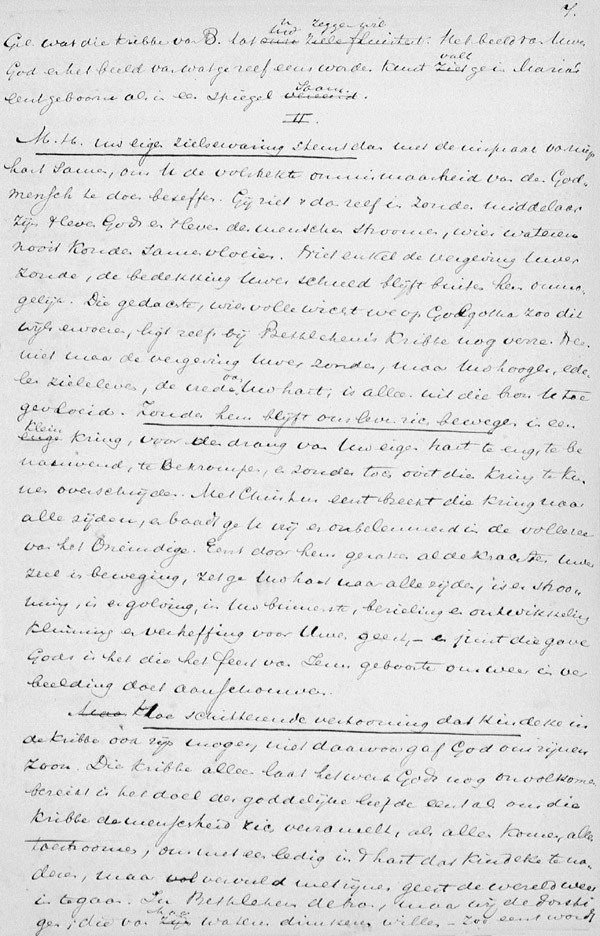 7.
Gel. wat die kribbe van B. tot U zeggen wil. Het beeld van Uwen
God en het beeld van wat ge zelf eens worden kunt valt ge in Maria's
eerstgeboorne als in een spiegel saam.
II.
M. H. Uw eigen zielservaring stemt dan met de inspraak van mijn
hart samen, om U de volstrekte onmisbaarheid van den God-
mensch te doen beseffen. Gij ziet 't dan zelf in zonder middelaar
zijn 't leven Gods en 't leven der menschen stroomen, wier wateren
nooit konden samenvloeien. Niet enkel de vergeving Uwer
zonde, de bedekking Uwer schuld blijft buiten hem onmo-
gelijk. Die gedachte, wier volle wicht we op Golgotha zoo dik-
wijls ligt zelfs bij Bethlehem's kribbe nog verre. Neen
niet maar de vergeving Uwer zonden, maar Uw hooger, ede-
ler zieleleven, de vrede van Uw hart, is alleen uit die bron U toe
gevloeid. Zonder hem blijft ons leven zich bewegen in een
klein kring, voor den drang van Uw eigen hart te eng, te be
nauwend, te bekrompen, en zonder toch ooit die kring te kun
nen overschrijden. Met Christus eerst breekt die kring naar
alle zijden, en baadt ge U vrij en onbelemmerd in de volle zee
van het Oneindige. Eerst door hem geraken al de krachten Uwer
ziel in beweging, zet ge Uw hart naar alle zijden, is er stroo-
ming, is er golving, in Uw binnenste, bezieling en ontwikkeling
klimming en verheffing voor Uwen geest, – en juist die gave
Gods is het die het feest van Jezus geboorte ons weer in ver
beelding doet aanschouwen.
Maar Hoe schitterende vertooning dat kindeke in
de kribbe ook zijn moge, niet daarvoor gaf God ons zijnen
Zoon. Die kribbe alleen laat het werk Gods nog onvolkomen
bereikt is het doel der goddelijke liefde eerst als om die
kribbe de menschheid zich verzamelt, als allen komen, allen
toestroomen, om met een ledig in 't hart dat kindeke te na-
deren, maar vervuld met zijnen geest de wereld weer
in te gaan. In Bethlehem de bron, maar wij de dorsti
gen, die van hare wateren drinken willen – zoo eerst wordt